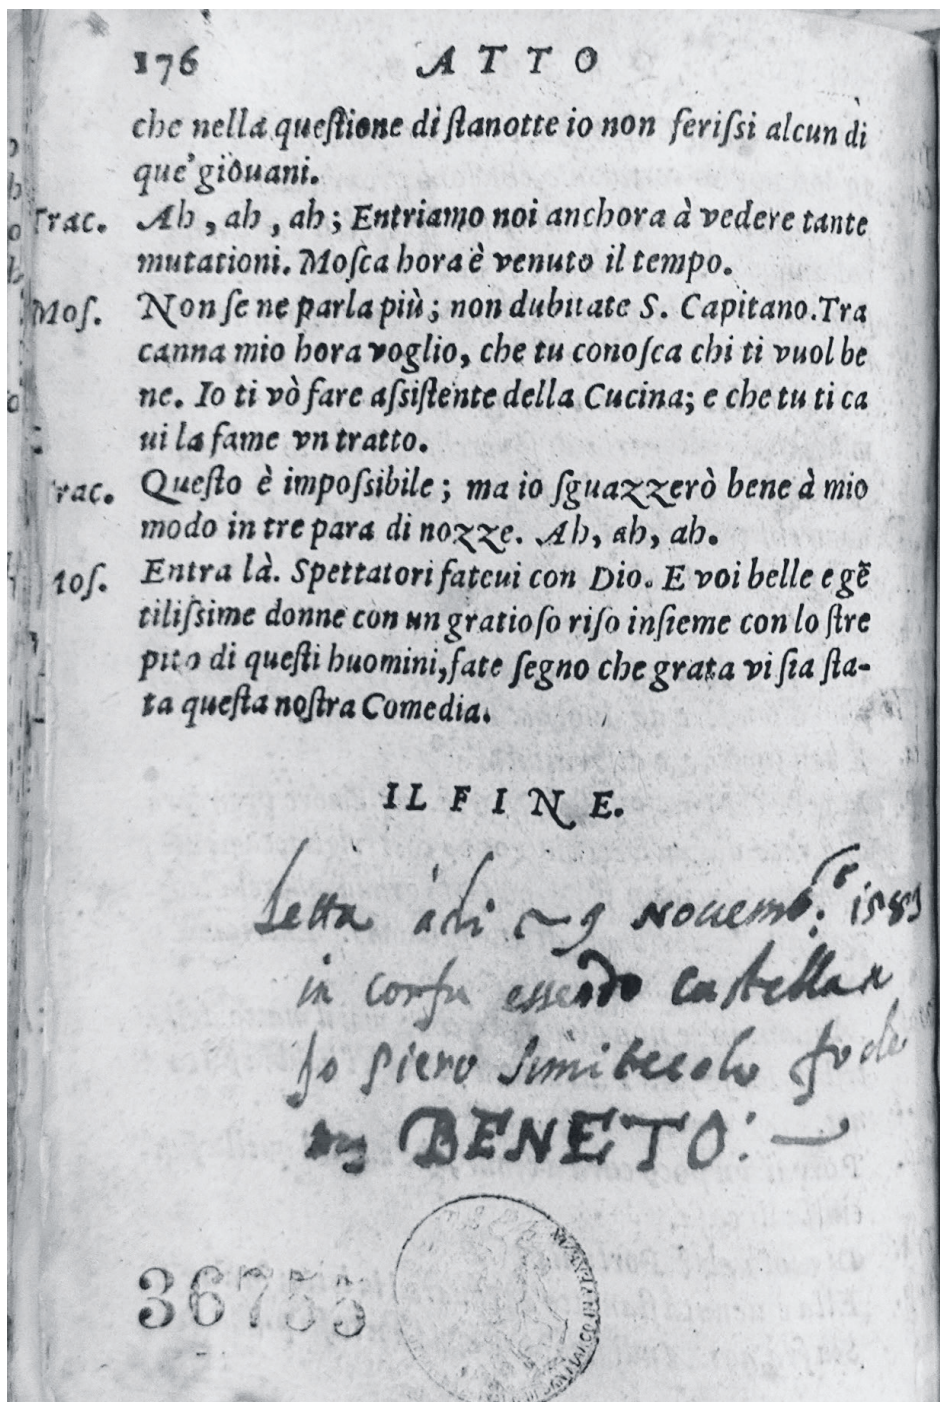 176 ATTO
che nella questione di stanotte io non ferissi alcun di
que' giouani.
Trac. Ah, ah, ah; Entriamo noi anchora à vedere tante
mutationi. Mosca hora è venuto il tempo.
Mos. Non se ne parla più; non dubitate S. Capitano. Tra
canna mio hora voglio, che tu conosca chi ti vuol be
ne. Io ti vò fare assistente della Cucina; e che tu ti ca
ui la fame vn tratto.
rac. Questo è impossibile; ma io sguazzerò bene à mio
modo in tre para di nozze. Ah, ah, ah.
Mos. Entra là. Spettatori fateui con Dio. E voi belle e gẽ
tilissime donne con un gratioso riso insieme con lo stre
pito di questi huomini, fate segno che grata vi sia sta-
ta questa nostra Comedia.
IL FINE.
Letta adi 9 Nouemb.re 158
in corfu essendo Castellan
Io Piero Simitecolo fo de
BENETO:
36755